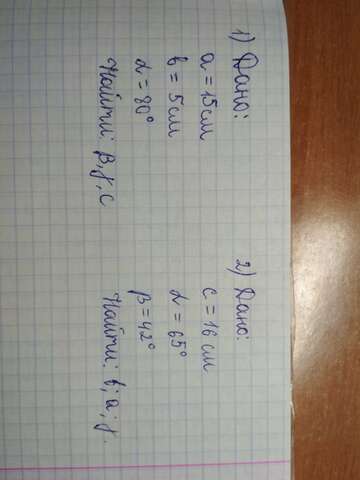 1) Дано:
a = 15 см
в = 5 см
α = 80°
Найти: β, γ, c
2) Дано:
c = 16 см
α = 65°
β = 42°
Найти: в; a; γ.